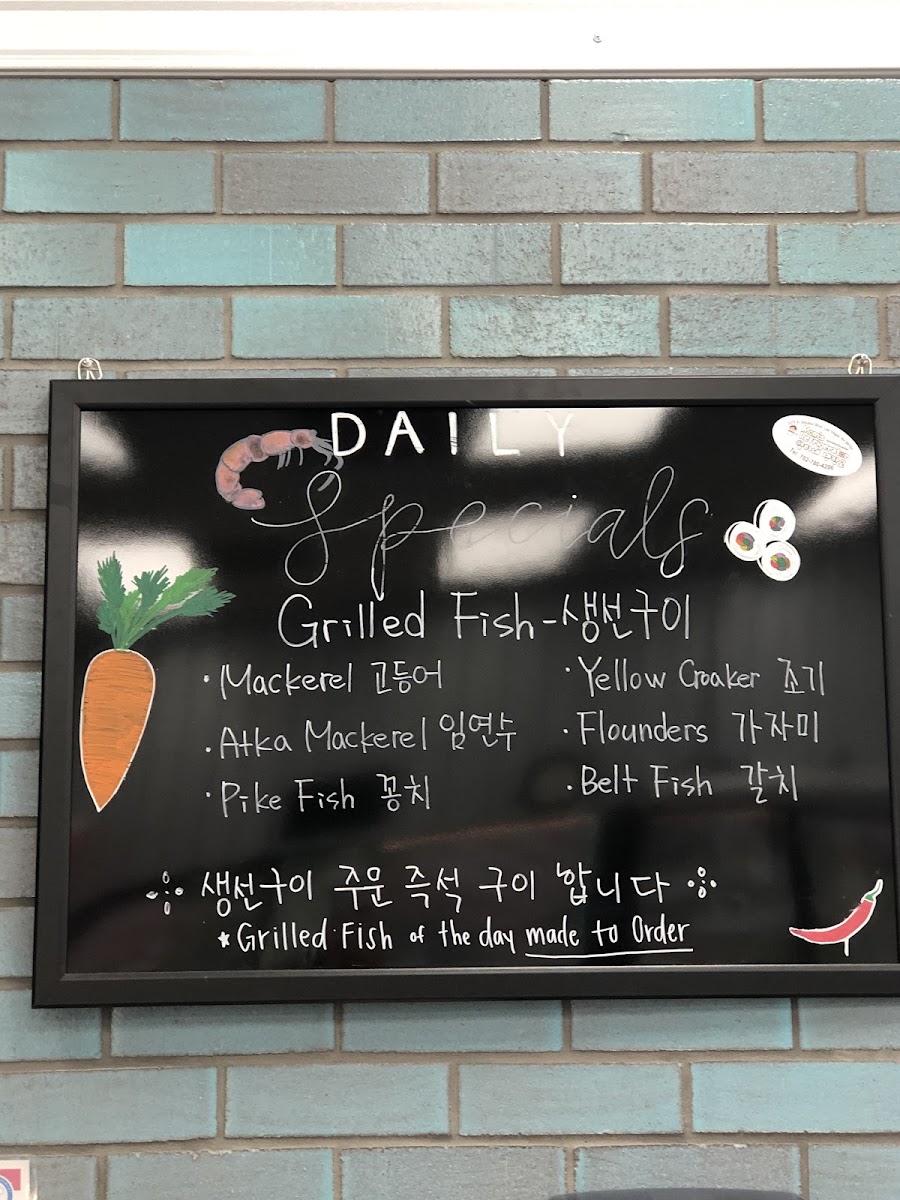 DAILY
Specials
Grilled Fish-생선구이
·Mackerel 고등어
·Atka Mackerel 임연수
·Pike Fish 꽁치
·Yellow Croaker 조기
·Flounders 가자미
·Belt Fish 갈치
생선구이 주문 즉석 구이 합니다
*Grilled Fish of the day made to Order